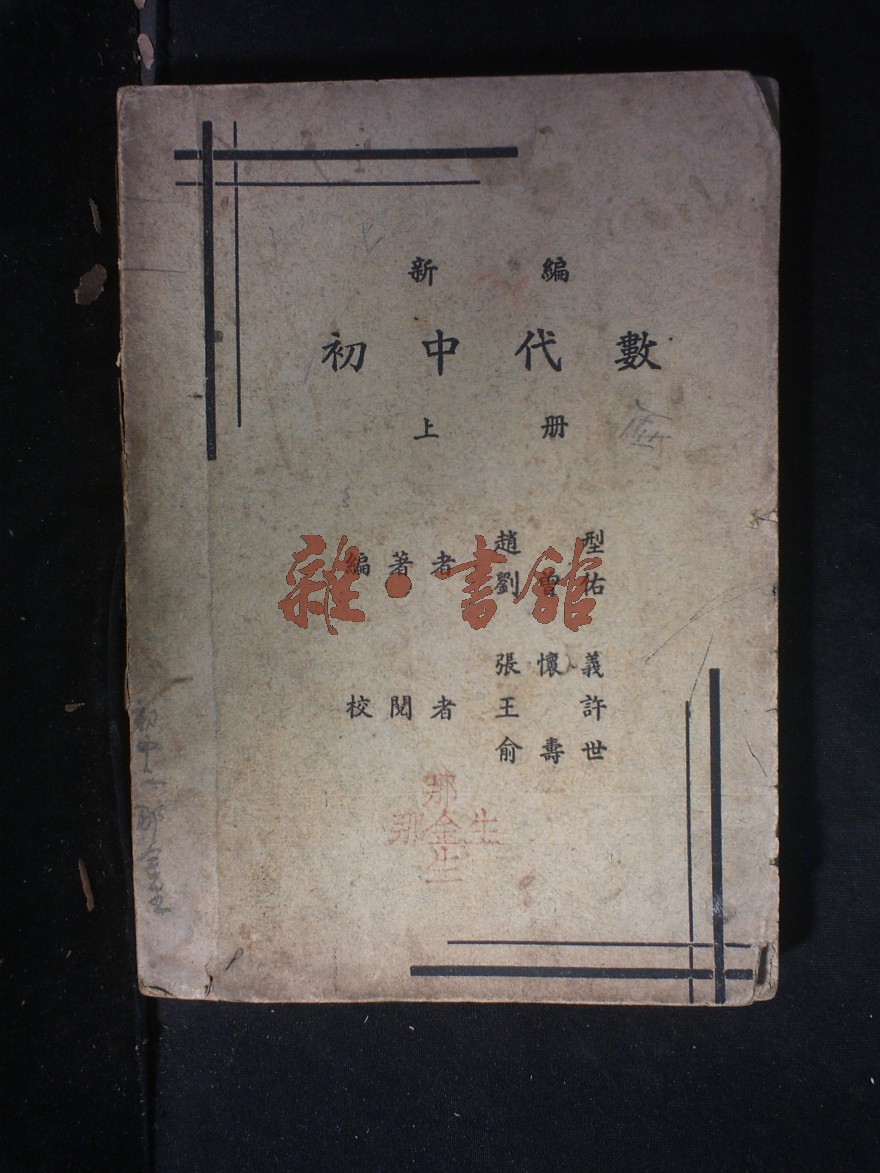 新編
初中代數
上册
趙型
編著者
劉曾佑
雜·書館
張懷義
校閱者 王許
俞壽世
那
那金生
生
初中一 那金生